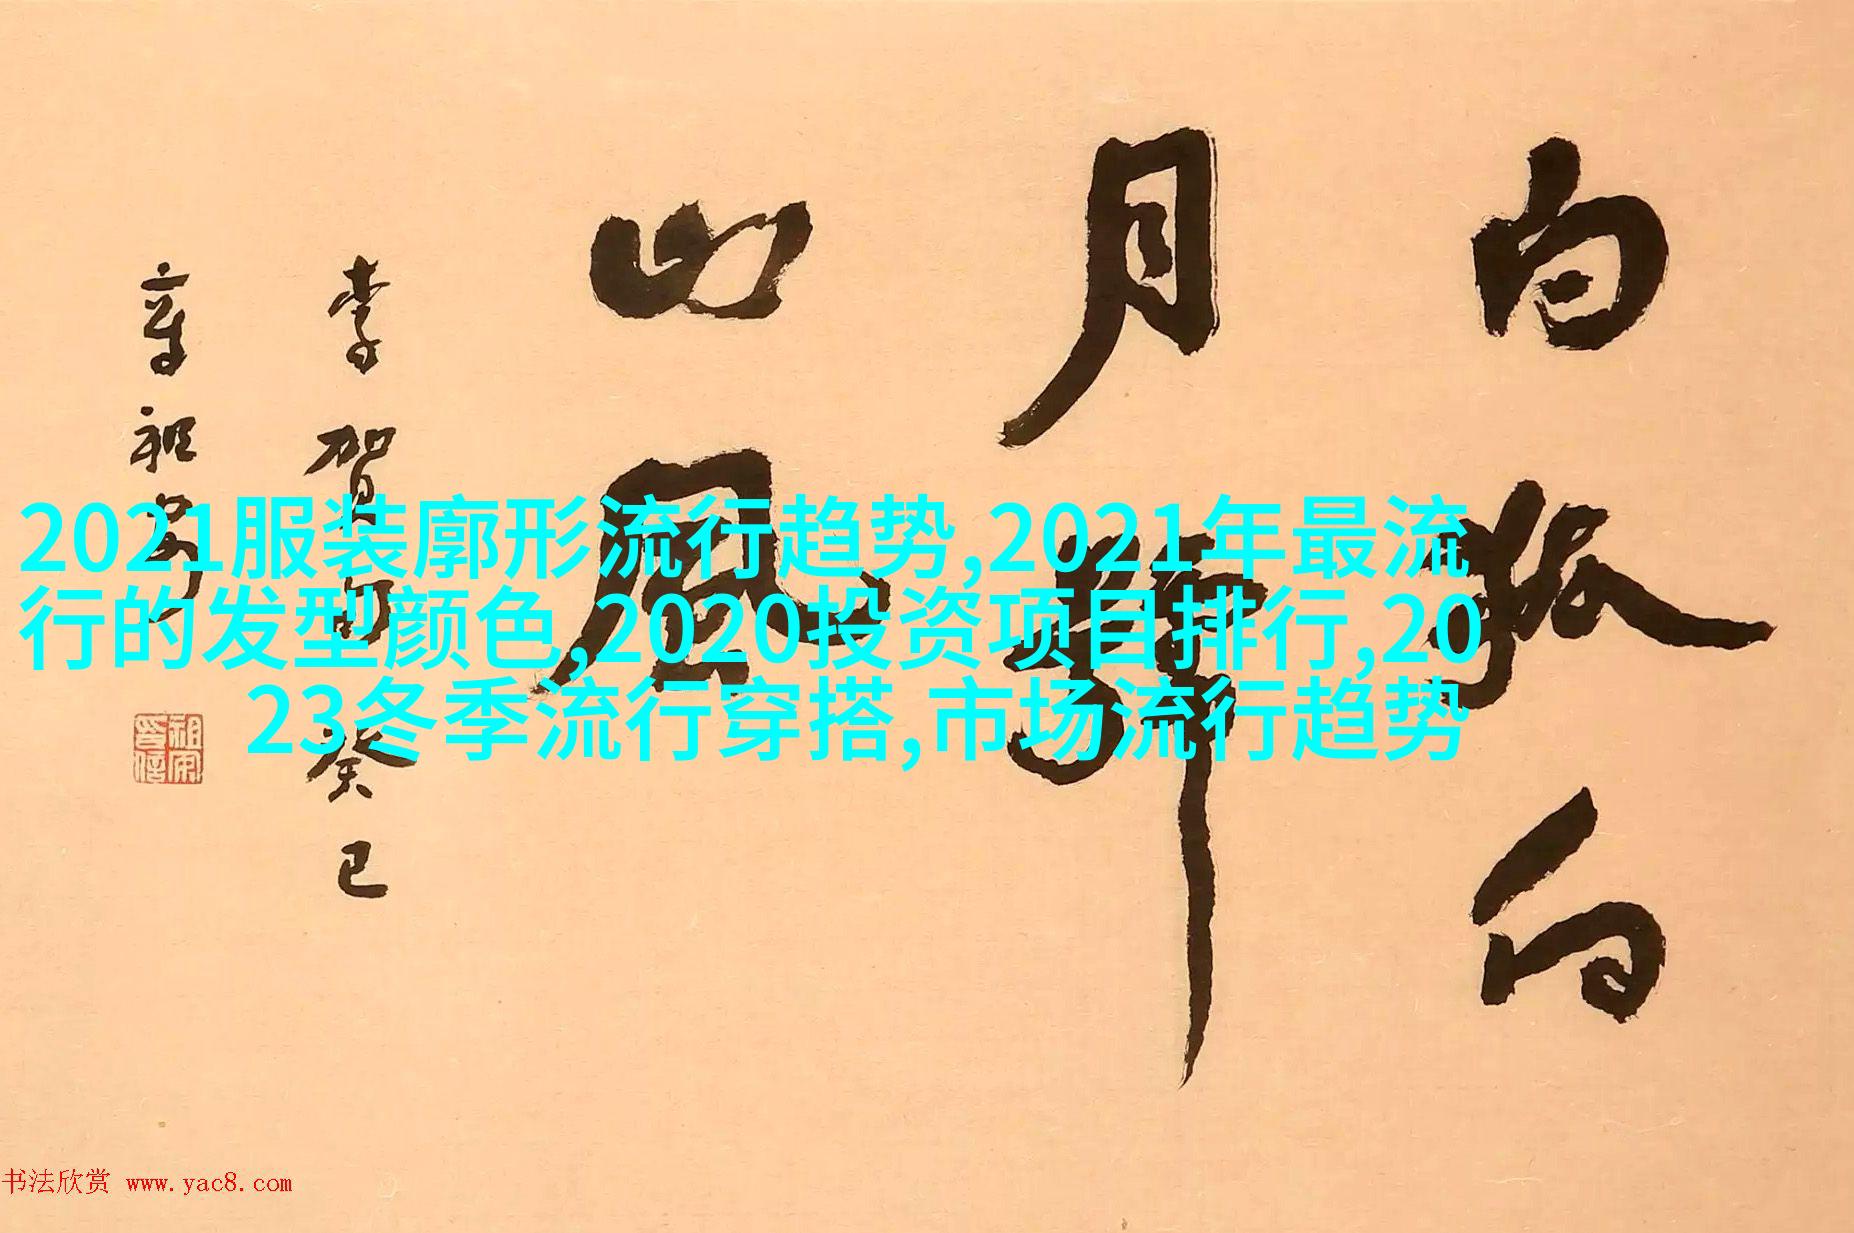 白狐向
月號
山風
李賀句癸巳
章祖安
祖安印信
2021服装廓形流行趋势,2021年最流
行的发型颜色,2020投资项目排行,20
23冬季流行穿搭,市场流行趋势
书法欣赏 www.yac8.com